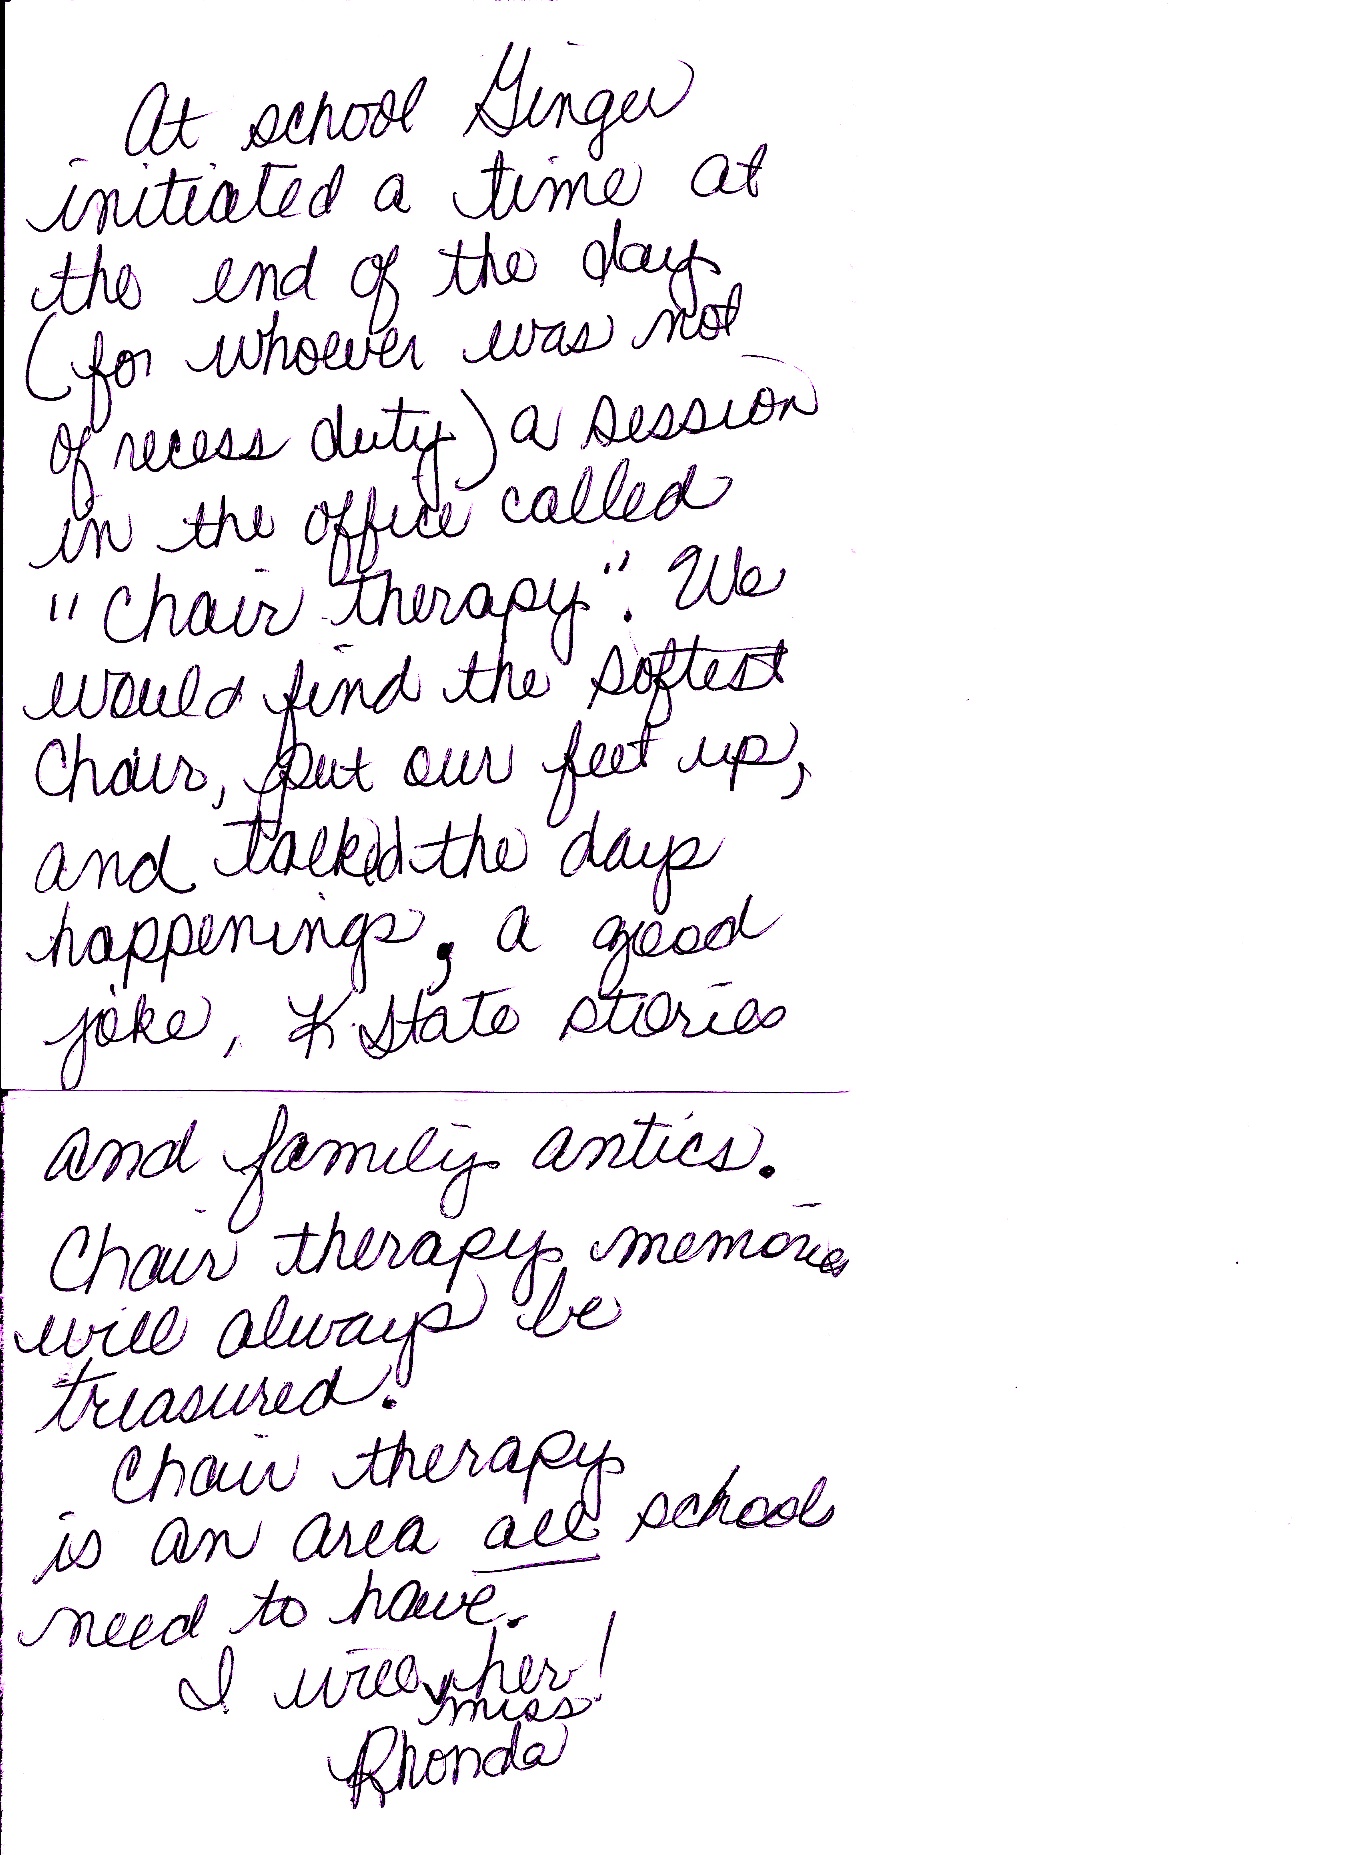 At school Ginger
initiated a time at
the end of the day
(for whoever was not
of recess duty) a session
in the office called
"Chair therapy". We
would find the softest
Chair, put our feet up,
and talked the days
happenings, a good
joke, K-State stories
and family antics.
Chair therapy memories
will always be
treasured.
Chair therapy
is an area all school
need to have.
I will her!
miss
Rhonda